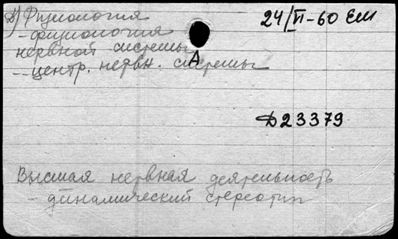 Физиология
24/II-60 Еш
- физиология
нервной системы
-- центр. нервн. системы
А
Д23379
Высшая нервная деятельность
- динамический стереотип